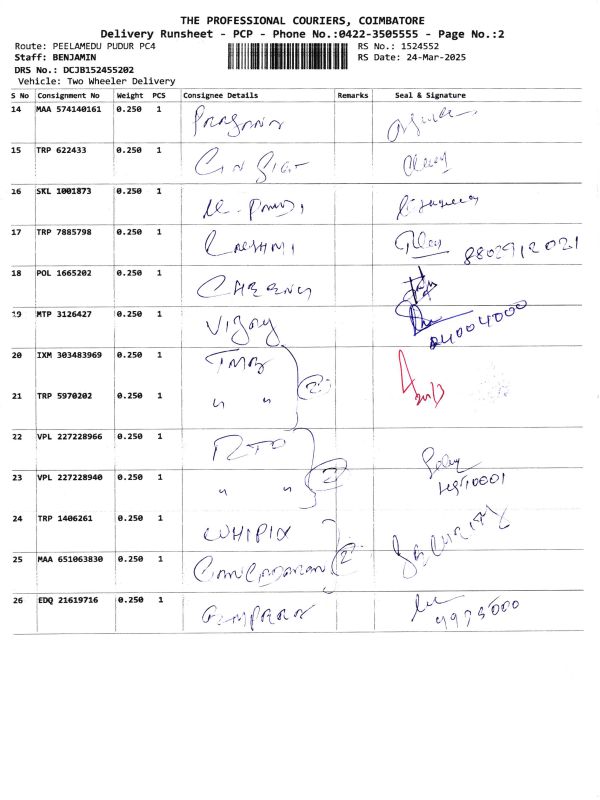 THE PROFESSIONAL COURIERS, COIMBATORE
Delivery Runsheet - PCP - Phone No.:0422-3505555 - Page No.:2
Route: PEELAMEDU PUDUR PC4
RS No.: 1524552
Staff: BENJAMIN
RS Date: 24-Mar-2025
DRS No.: DCJB152455202
Vehicle: Two Wheeler Delivery
S No Consignment No Weight PCS Consignee Details Remarks Seal & Signature
14 MAA 574140161 0.250 1
15 TRP 622433 0.250 1
16 SKL 1001873 0.250 1
17 TRP 7885798 0.250 1 LAKSHMI
18 POL 1665202 0.250 1
19 MTP 3126427 0.250 1 Vijay
24004000
20 IXM 303483969 0.250 1 TMB
21 TRP 5970202 0.250 1 " " 2
22 VPL 227228966 0.250 1 RTO
23 VPL 227228940 0.250 1 " " 2
24 TRP 1406261 0.250 1 WHIPIX SECURITY
25 MAA 651063830 0.250 1 2
26 EDQ 21619716 0.250 1
4975000